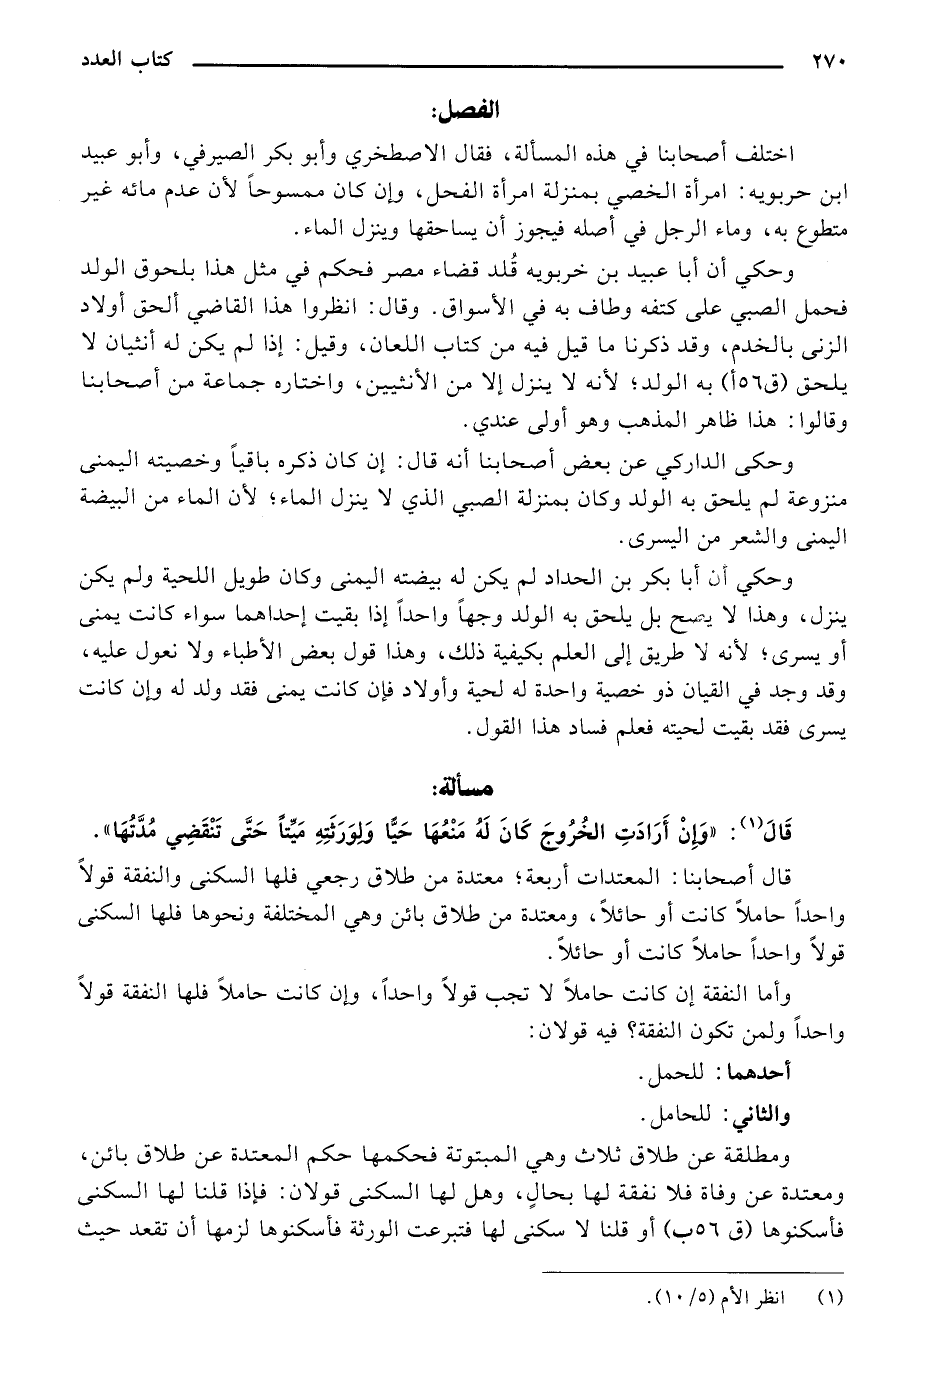 ٢٧٠ كتاب العدد
الفصل:
اختلف أصحابنا في هذه المسألة، فقال الاصطخري وأبو بكر الصيرفي، وأبو عبيد
ابن حربويه: امرأة الخصي بمنزلة امرأة الفحل، وإن كان ممسوحاً لأن عدم مائه غير
متطوع به، وماء الرجل في أصله فيجوز أن يساحقها وينزل الماء.
وحكي أن أبا عبيد بن خربويه قُلد قضاء مصر فحكم في مثل هذا بلحوق الولد
فحمل الصبي على كتفه وطاف به في الأسواق. وقال: انظروا هذا القاضي ألحق أولاد
الزنى بالخدم، وقد ذكرنا ما قيل فيه من كتاب اللعان، وقيل: إذا لم يكن له أنثيان لا
يلحق (ق٥٦أ) به الولد؛ لأنه لا ينزل إلا من الأنثيين، واختاره جماعة من أصحابنا
وقالوا: هذا ظاهر المذهب وهو أولى عندي.
وحكى الداركي عن بعض أصحابنا أنه قال: إن كان ذكره باقياً وخصيته اليمنى
منزوعة لم يلحق به الولد وكان بمنزلة الصبي الذي لا ينزل الماء؛ لأن الماء من البيضة
اليمنى والشعر من اليسرى.
وحكي أن أبا بكر بن الحداد لم يكن له بيضته اليمنى وكان طويل اللحية ولم يكن
ينزل، وهذا لا يصح بل يلحق به الولد وجهاً واحداً إذا بقيت إحداهما سواء كانت يمنى
أو يسرى؛ لأنه لا طريق إلى العلم بكيفية ذلك، وهذا قول بعض الأطباء ولا نعول عليه،
وقد وجد في القيان ذو خصية واحدة له لحية وأولاد فإن كانت يمنى فقد ولد له وإن كانت
يسرى فقد بقيت لحيته فعلم فساد هذا القول.
مسألة:
قَالَ(١): «وَإِنْ أَرَادَتِ الخُرُوجَ كَانَ لَهُ مَنْعُهَا حَيًّا وَلِوَرَثَتِهِ مَيِّتاً حَتَّى تَنْقَضِي مُدَّتُهَا».
قال أصحابنا: المعتدات أربعة؛ معتدة من طلاق رجعي فلها السكنى والنفقة قولاً
واحداً حاملاً كانت أو حائلاً، ومعتدة من طلاق بائن وهي المختلفة ونحوها فلها السكنى
قولاً واحداً حاملاً كانت أو حائلاً.
وأما النفقة إن كانت حاملاً لا تجب قولاً واحداً، وإن كانت حاملاً فلها النفقة قولاً
واحداً ولمن تكون النفقة؟ فيه قولان:
أحدهما: للحمل.
والثاني: للحامل.
ومطلقة عن طلاق ثلاث وهي المبتوتة فحكمها حكم المعتدة عن طلاق بائن،
ومعتدة عن وفاة فلا نفقة لها بحالٍ، وهل لها السكنى قولان: فإذا قلنا لها السكنى
فأسكنوها (ق ٥٦ب) أو قلنا لا سكنى لها فتبرعت الورثة فأسكنوها لزمها أن تقعد حيث
(١) انظر الأم (١٠/٥).